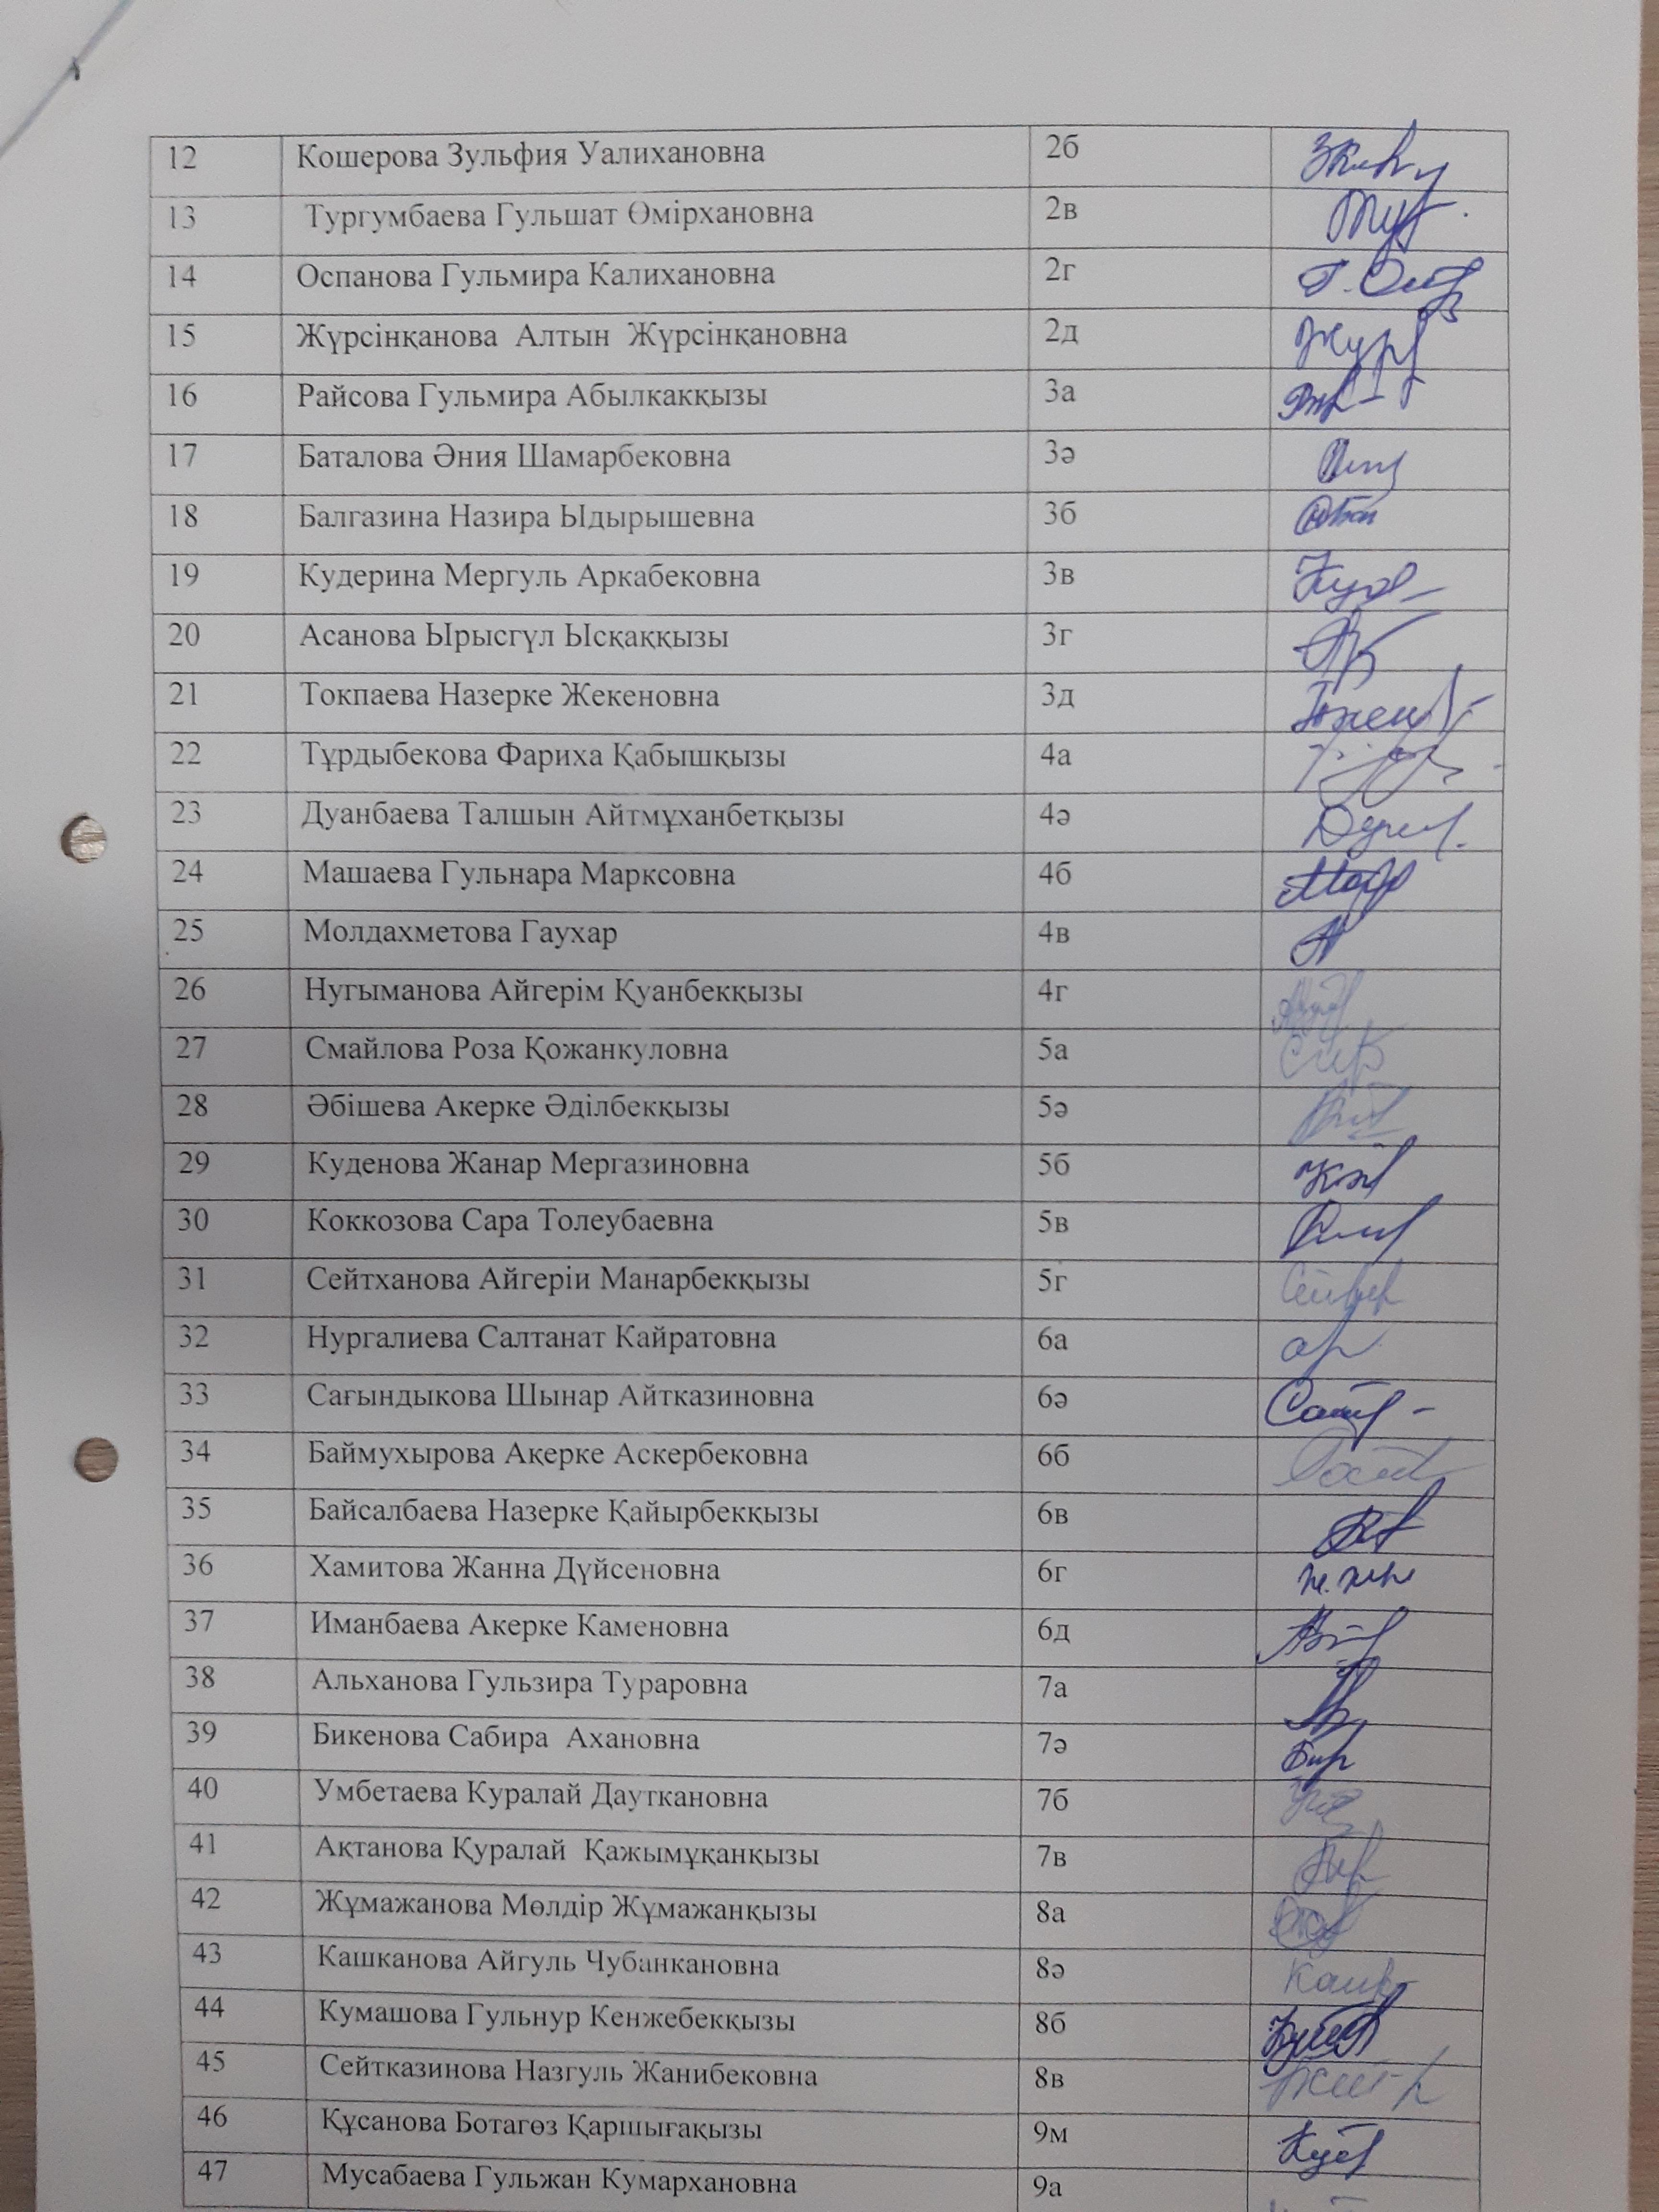 12 Кошерова Зульфия Уалихановна 2б
13 Тургумбаева Гульшат Өмірхановна 2в
14 Оспанова Гульмира Калихановна 2г
15 Жүрсінқанова Алтын Жүрсінқановна 2д
16 Райсова Гульмира Абылкаққызы 3а
17 Баталова Әния Шамарбековна 3ә
18 Балгазина Назира Ыдырышевна 3б
19 Кудерина Мергуль Аркабековна 3в
20 Асанова Ырысгүл Ысқаққызы 3г
21 Токпаева Назерке Жекеновна 3д
22 Тұрдыбекова Фариха Қабышқызы 4а
23 Дуанбаева Талшын Айтмұханбетқызы 4ә
24 Машаева Гульнара Марксовна 4б
25 Молдахметова Гаухар 4в
26 Нугыманова Айгерім Қуанбекқызы 4г
27 Смайлова Роза Қожанкуловна 5а
28 Әбішева Акерке Әділбекқызы 5ә
29 Куденова Жанар Мергазиновна 5б
30 Коккозова Сара Толеубаевна 5в
31 Сейтханова Айгеріи Манарбекқызы 5г
32 Нургалиева Салтанат Кайратовна 6а
33 Сағындыкова Шынар Айтказиновна 6ә
34 Баймухырова Ақерке Аскербековна 6б
35 Байсалбаева Назерке Қайырбекқызы 6в
36 Хамитова Жанна Дүйсеновна 6г
37 Иманбаева Акерке Каменовна 6д
38 Альханова Гульзира Тураровна 7а
39 Бикенова Сабира Ахановна 7ә
40 Умбетаева Куралай Дауткановна 7б
41 Ақтанова Қуралай Қажымұқанқызы 7в
42 Жұмажанова Мөлдір Жұмажанқызы 8а
43 Кашканова Айгуль Чубанкановна 8ә
44 Кумашова Гульнур Кенжебекқызы 8б
45 Сейтказинова Назгуль Жанибековна 8в
46 Құсанова Ботагөз Қаршығақызы 9м
47 Мусабаева Гульжан Кумархановна 9а